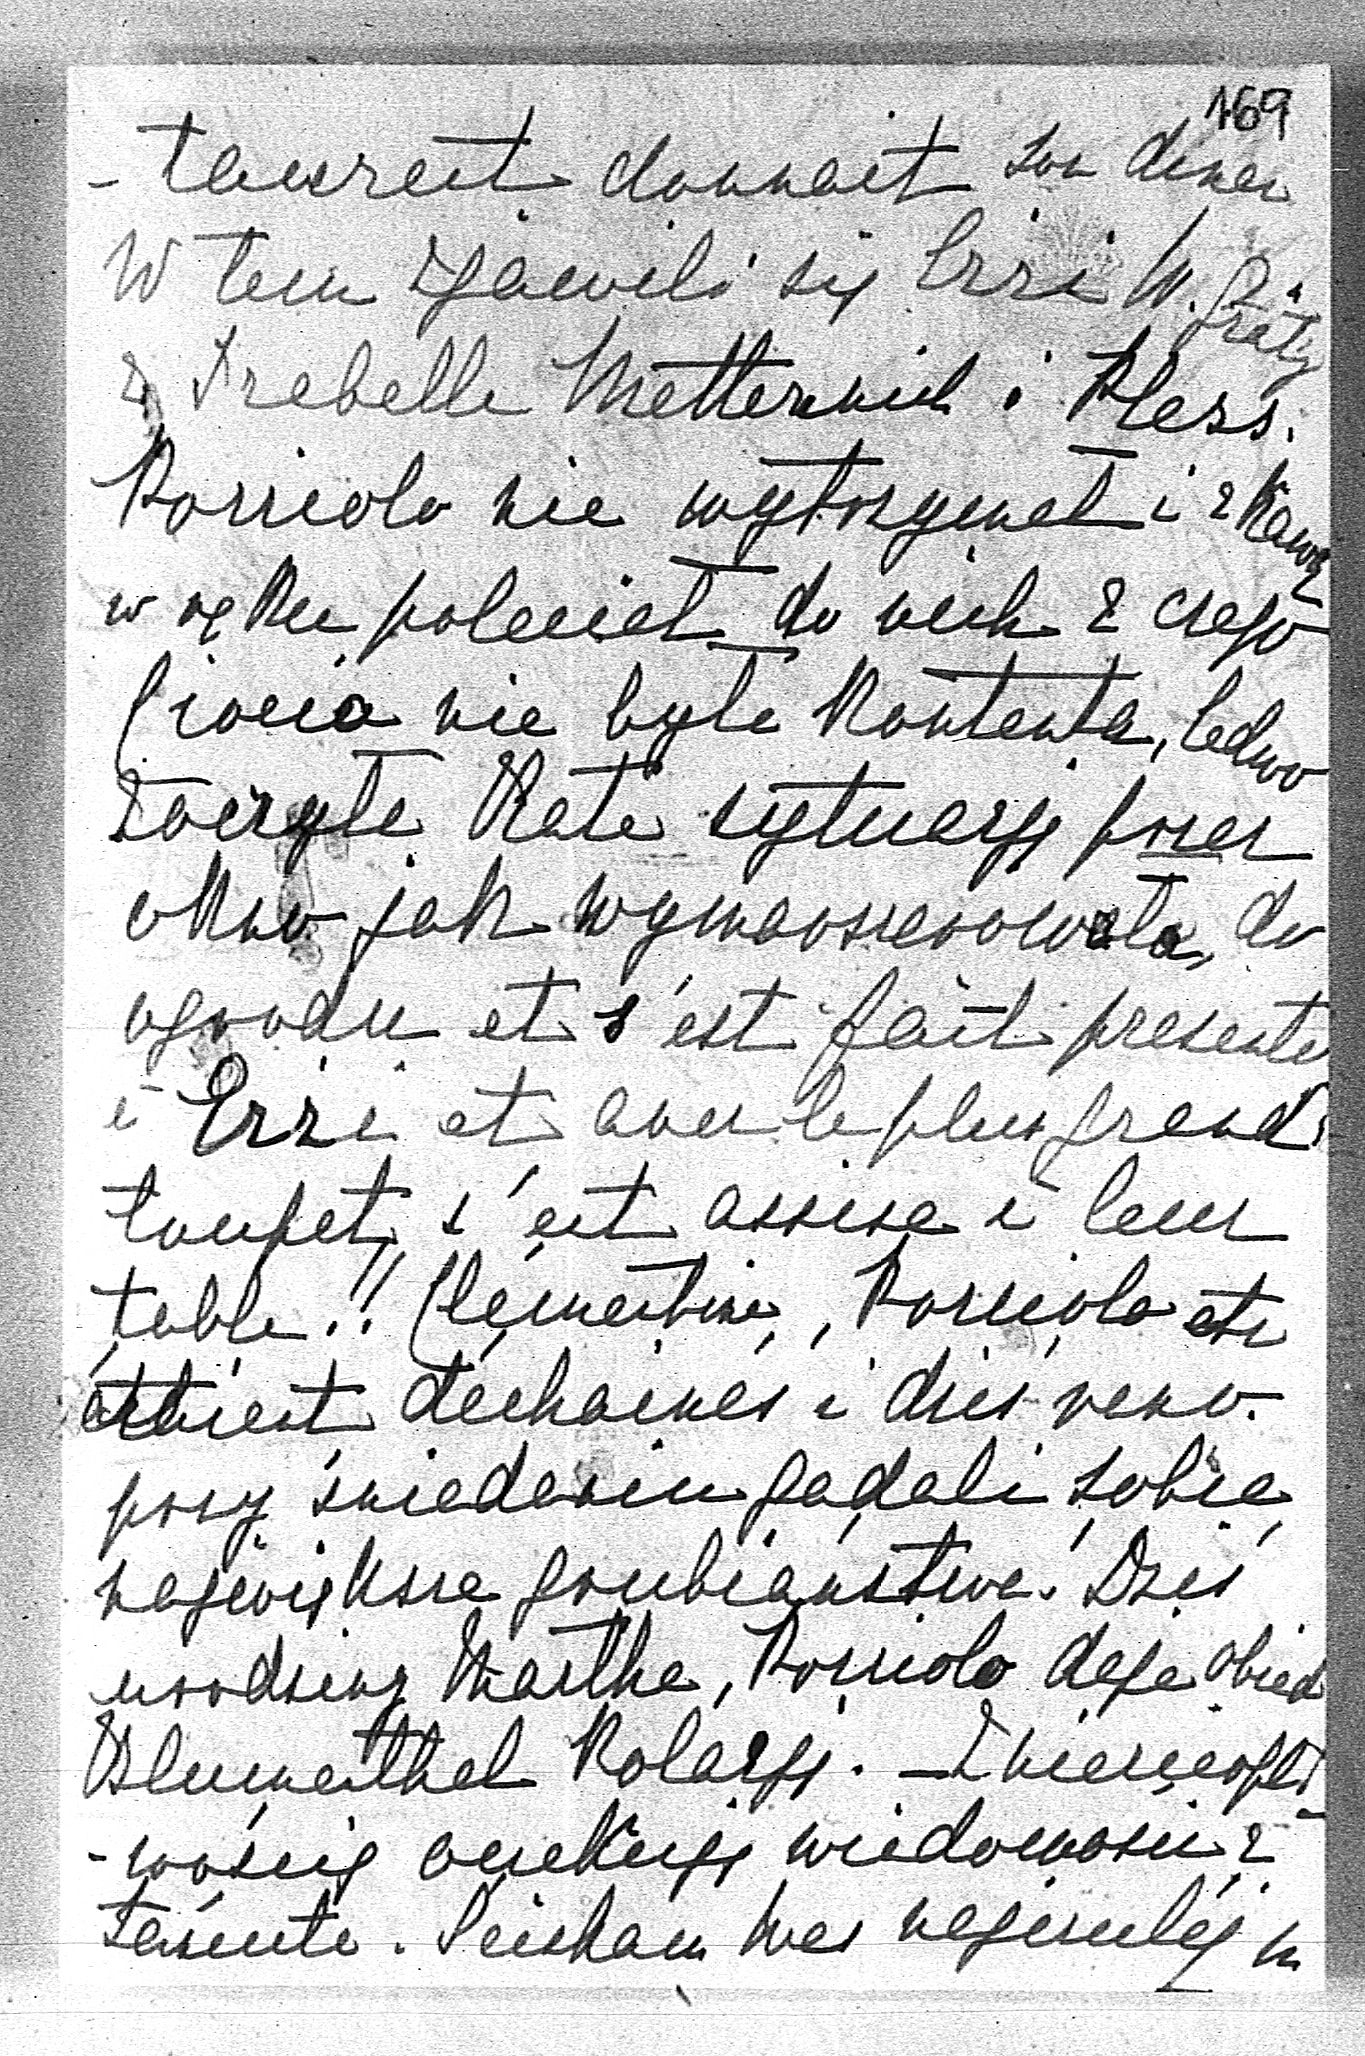 169
- taurant donnait son diner
W tem zjawili się Erzi W. Gratz
z Izabelle Metternich i Pless.
Korriolo nie wytrzymał i z kawą
w ręku poleciał do nich z czego
Ciocia nie była kontenta, ledwo
zoczyła Kate sytuację przez
okno jak wymaszerowała do
ogrodu et s'est fait presenter
à Erzi et avec le plus grand
toupet s'est assise à leur
table!! Clémentine, Korriolo etc
étaient déchainés i dziś rano
przy śniadaniu gadali sobie
największe grubiaństwa. Dziś
urodziny Marthe, Korriolo daje obiad
Blumenthal kolację. – Z niecierpli
- wością oczekuję wiadomości z
Łańcuta. Ściskam Was najczulej